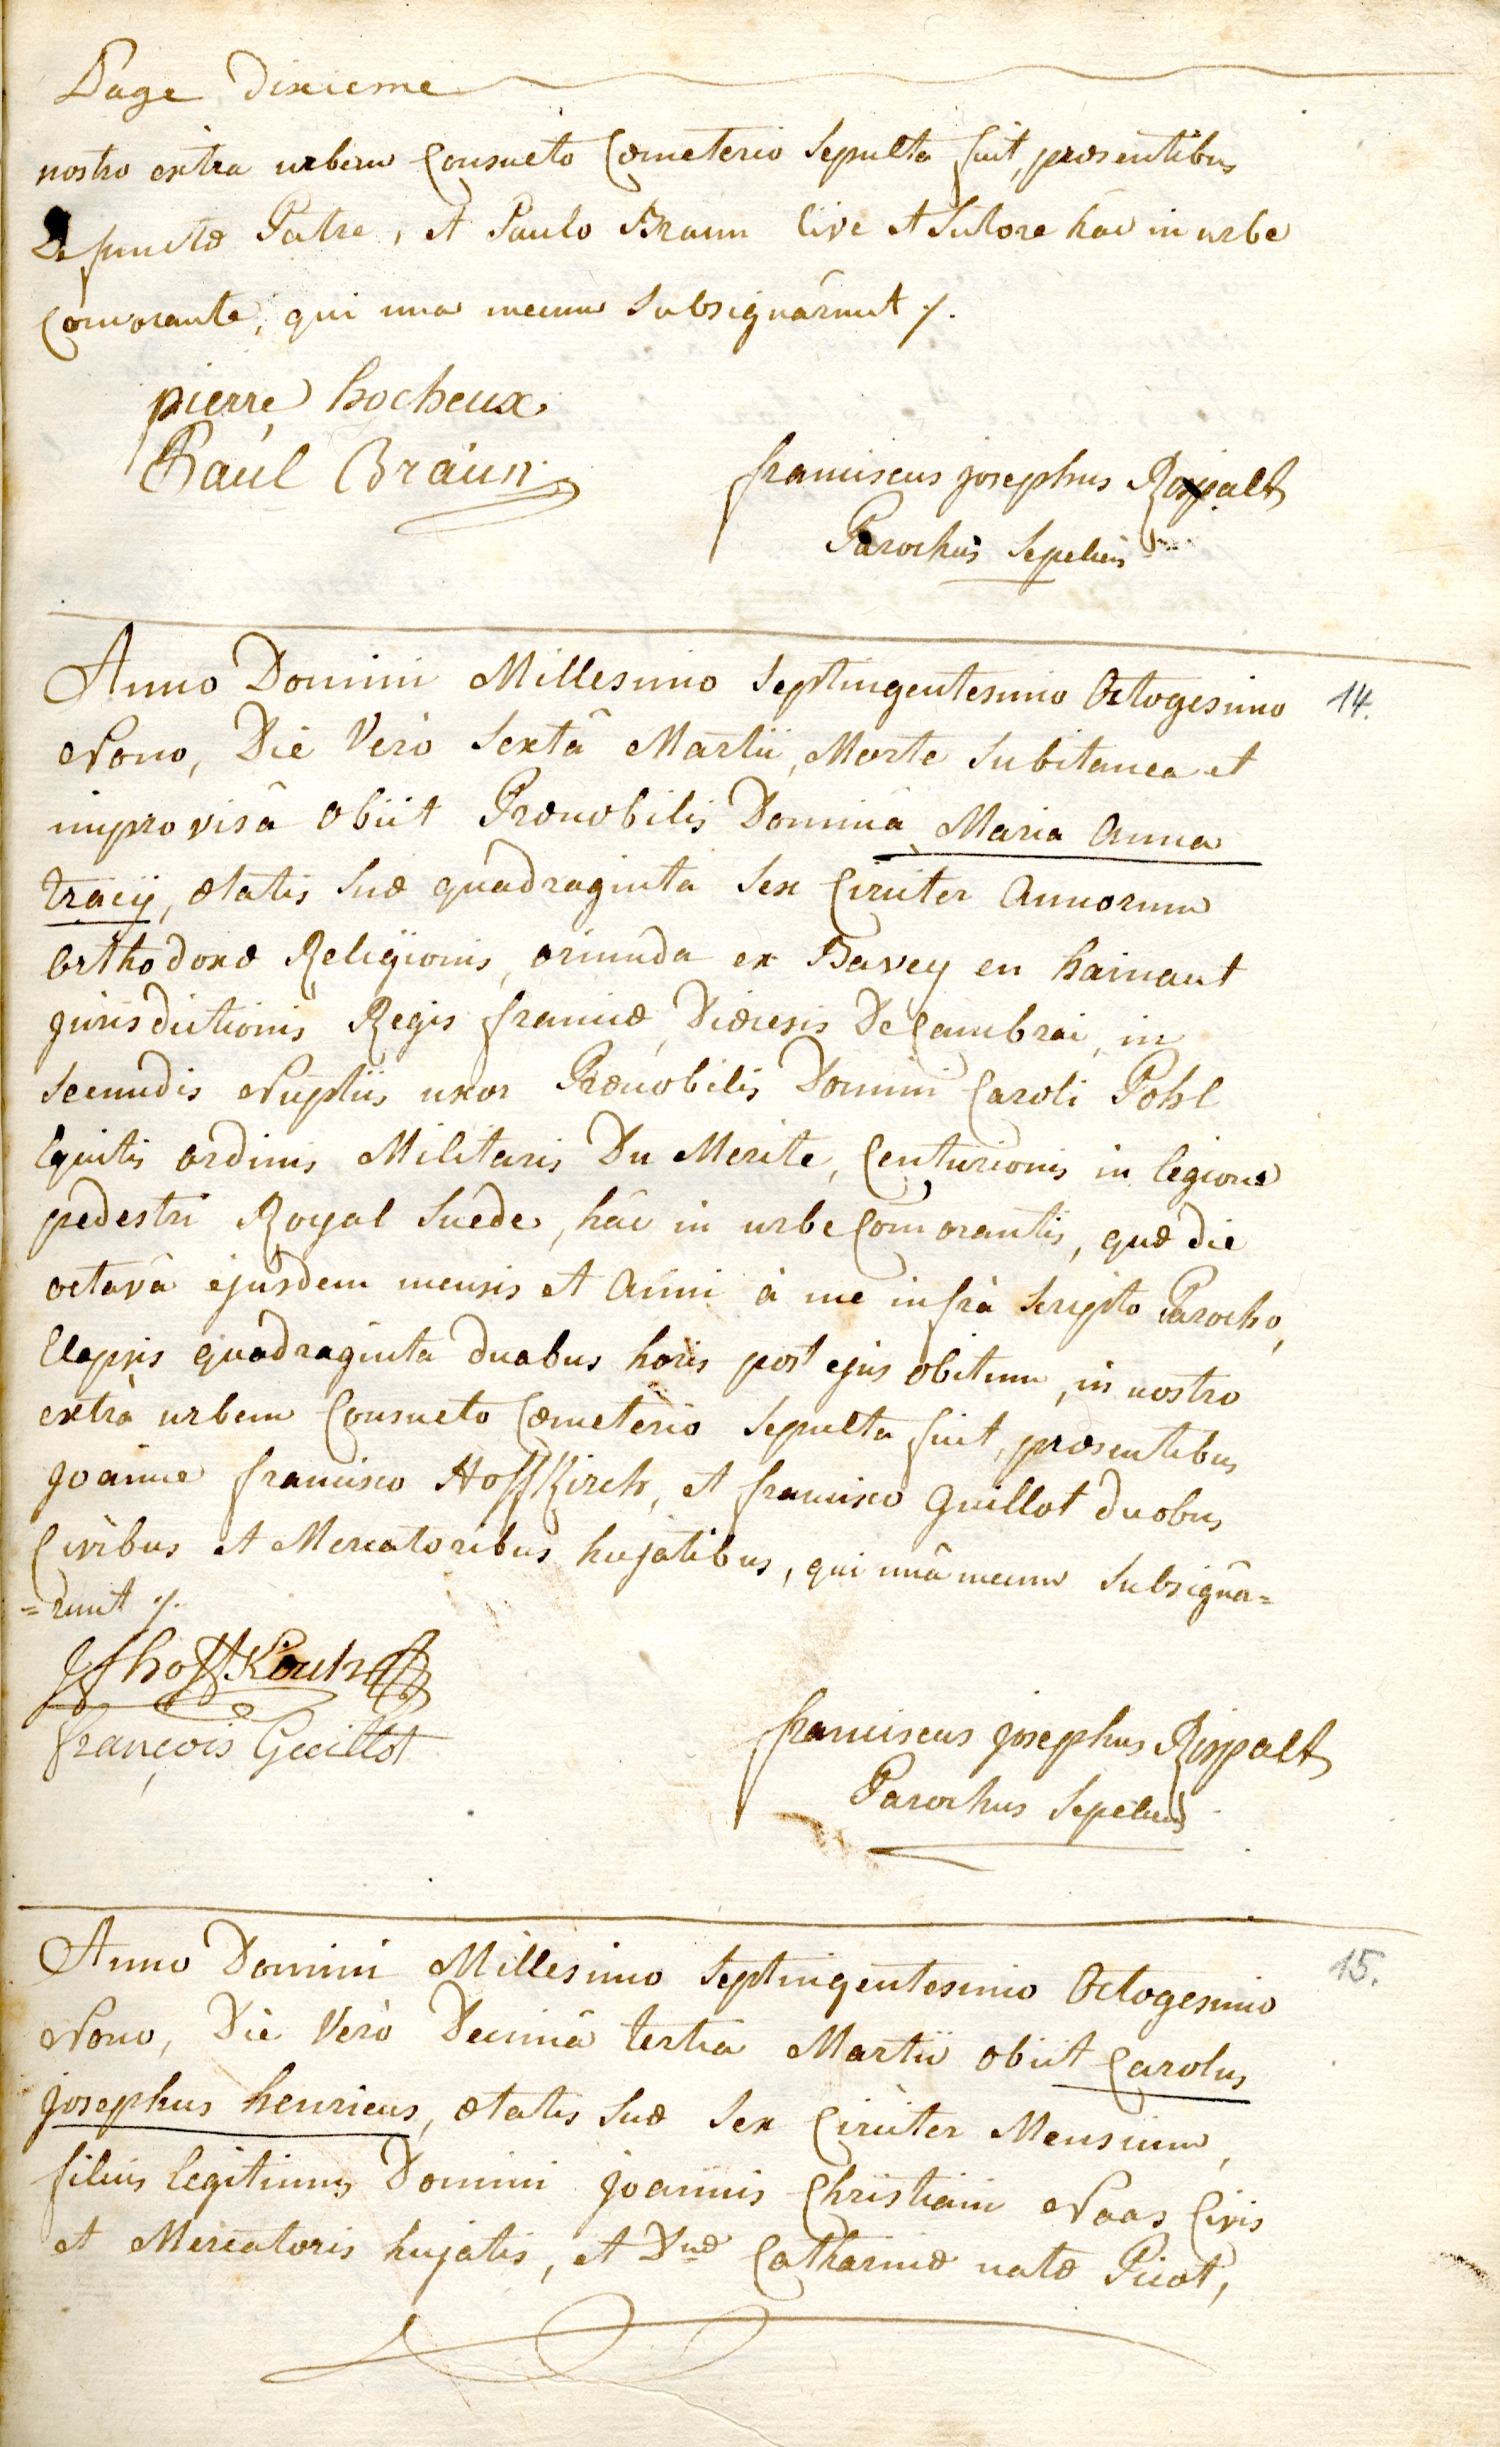 Page dixieme
nostro extra urbem Consueto Cœmeterio sepulta fuit, præsentibus
Defunctæ Patre, et Paulo Braun Cive et Sutore hâc in urbe
Com̄orante, qui una mecum subsignârunt ./.
pierre hocheux
Paul Braun
franciscus josephus Rospalt
Parochus sepeliens
Anno Domini Millesimo septingentesimo Octogesimo 14.
Nono, Die Verò sextâ Martii, Morte subitanea et
improvisâ obiit Prænobilis Domina Maria Anna
tracÿ, ætatis suæ quadraginta sex Circiter Annorum
orthodoxæ Religionis, oriunda ex Bavey en hainaut
jurisdictionis Regis franciæ, Diœcesis De Cambrai, in
secundis Nuptiis uxor Prænobilis Domini Caroli Pohl
Equitis ordinis Militaris Du Merite, Centurionis in legione
pedestri Royal Suede, hâc in urbe Com̄orantis, quæ die
octavâ ejusdem mensis et Anni à me infrà scripto Parocho,
Elapsis quadraginta duabus horis post ejus obitum, in nostro
extrà urbem Consueto Cœmeterio sepulta fuit, præsentibus
joanne francisco Hoffkirch, et francisco Guillot duobus
Civibus et Mercatoribus hujatibus, qui unâ mecum subsignâ=
=runt ./.
JfhoffKirch
françois Guillot
franciscus josephus Rospalt
Parochus sepeliens
Anno Domini Millesimo septingentesimo Octogesimo 15.
Nono, Die Verò Decimâ tertia Martii obiit Carolus
josephus henricus, ætatis suæ sex Circiter Mensium,
filius legitimus Domini joannis Christiani Naas Civis
et Mercatoris hujatis, et Dnæ Catharinæ natæ Picot,